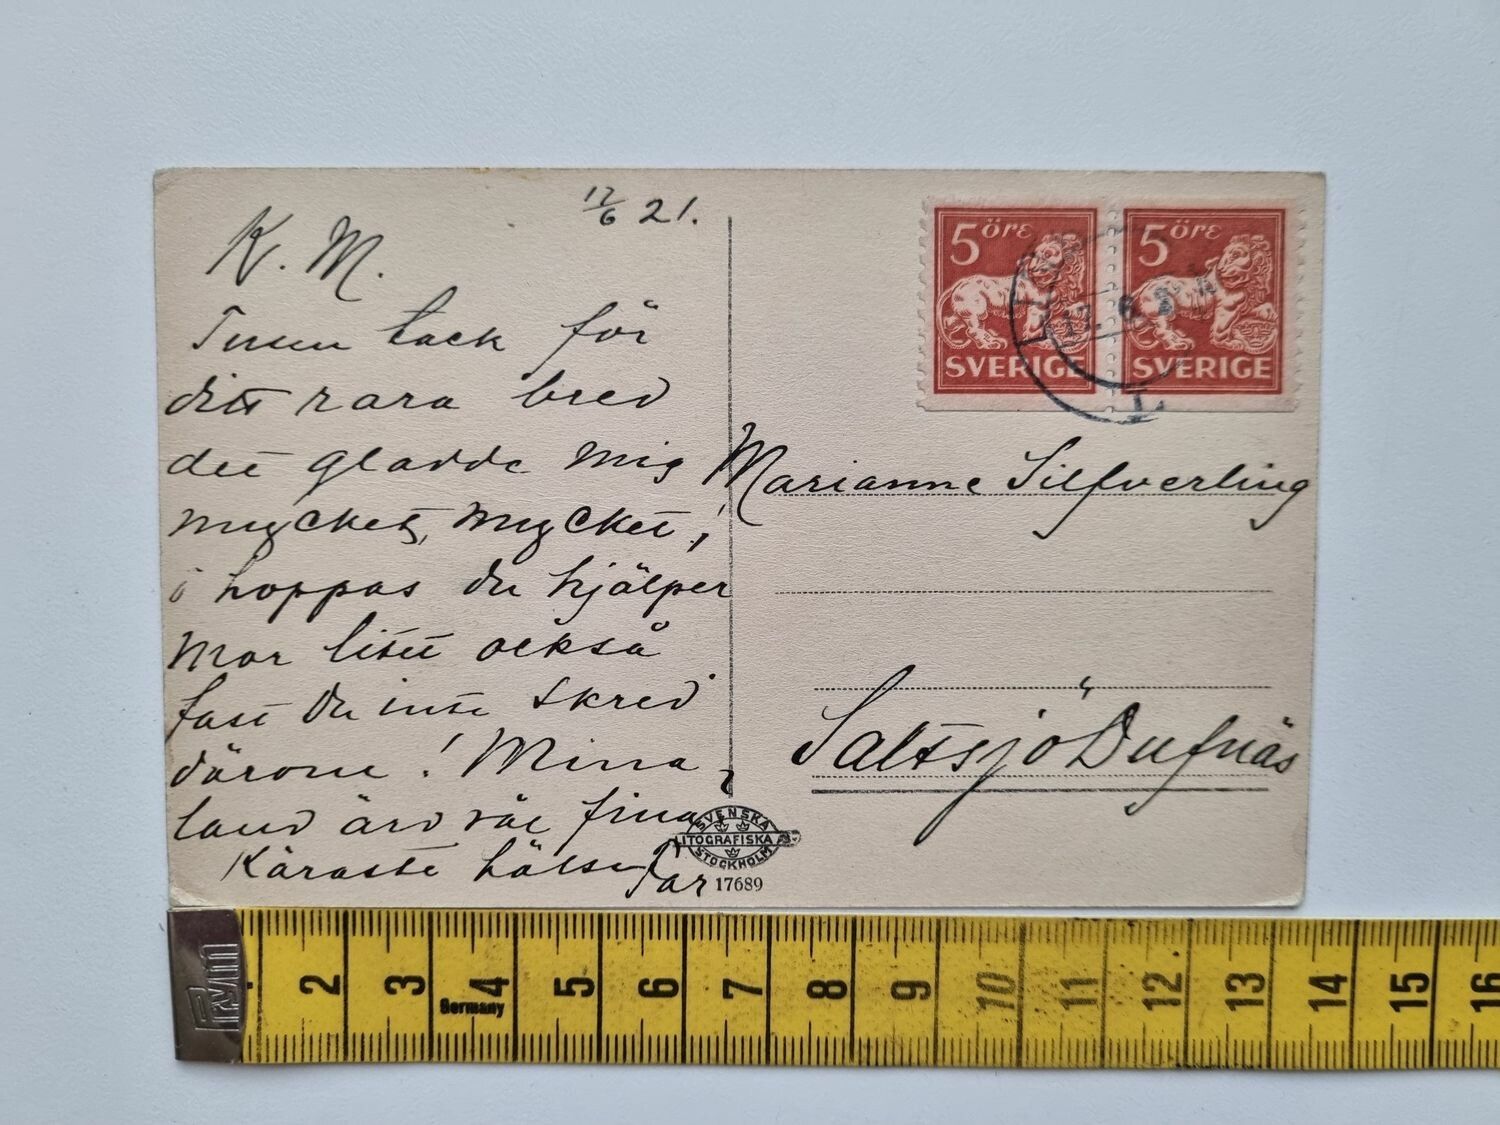 17/6 21.
K. M.
Tusen tack för
ditt rara brev
det gladde mig
mycket, mycket,
hoppas du hjälper
Mor litet också
fast Du inte skrev
därom! Mina
land äro väl fina
Käraste hälsn Far
Marianne Silfverling
Saltsjö Dufnäs
5 öre
SVERIGE
5 öre
SVERIGE
17. 6. 21
SVENSKA
LITOGRAFISKA
STOCKHOLM
17689
Prym
Germany
2 3 4 5 6 7 8 9 10 11 12 13 14 15 16